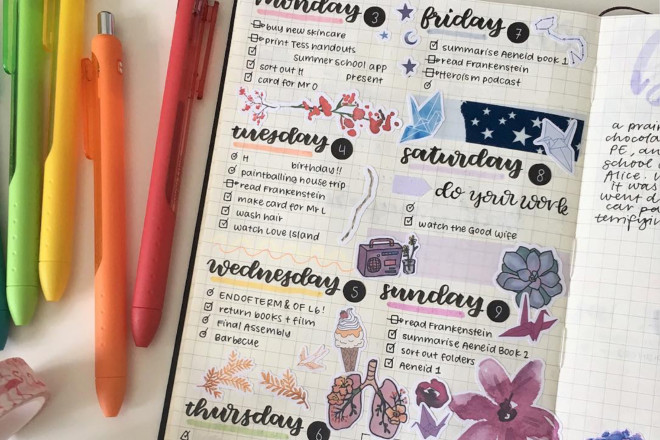 monday 3
buy new skincare
print Tess handouts
summer school app
sort out H present
card for Mr O
tuesday 4
H birthday!!
paintballing house trip
read Frankenstein
make card for Mr L
wash hair
watch Love Island
wednesday 5
END OF TERM & OF L6!
return books + film
Final Assembly
Barbecue
thursday 6
friday 7
summarise Aeneid book 1
read Frankenstein
Heroism podcast
saturday 8
do your work
watch the Good Wife
sunday 9
read Frankenstein
summarise Aeneid Book 2
sort out folders
Aeneid 1
a prai
chocola
PE, an
school
Alice. W
it was
went d
car po
terrifyi